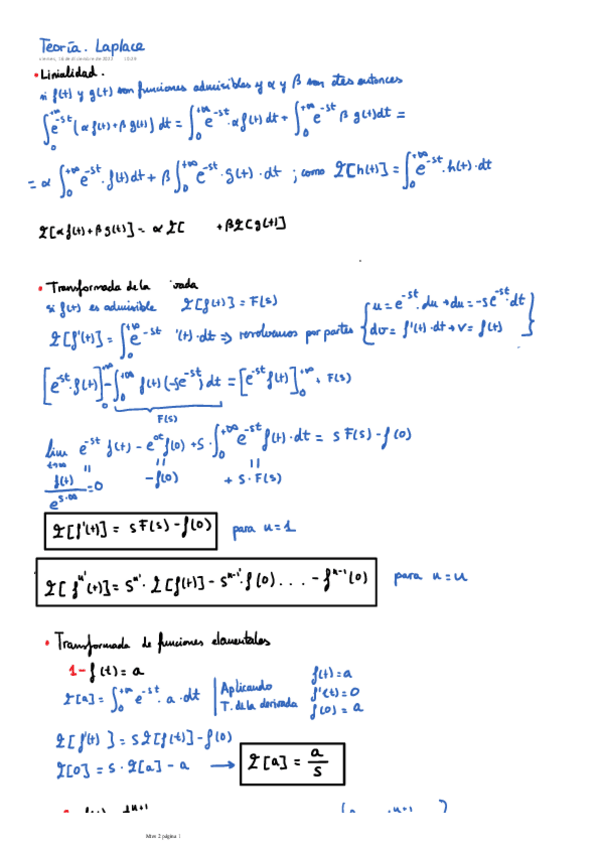 Teoría. Laplace
• Linialidad.
si f(t) y g(t) son funciones admisibles y α y β son ctes entonces
∫₀^{+∞} e^{-st} (α f(t) + β g(t)) dt = ∫₀^{+∞} e^{-st} · α f(t) dt + ∫₀^{+∞} e^{-st} β g(t) dt =
= α ∫₀^{+∞} e^{-st} · f(t) dt + β ∫₀^{+∞} e^{-st} · g(t) · dt ; como ℒ[h(t)] = ∫₀^{+∞} e^{-st} · h(t) · dt
ℒ[α f(t) + β g(t)] = α ℒ[ + β ℒ[g(t)]
• Transformada de la ivada
si f(t) es admisible ℒ[f(t)] = F(s)
{ u = e^{-st} · du → du = -s e^{-st} · dt
ℒ[f'(t)] = ∫₀^{+∞} e^{-st} '(t) · dt ⇒ resolvemos por partes
dv = f'(t) · dt → v = f(t) }
[e^{-st} · f(t)]₀^{+∞} - ∫₀^{+∞} f(t) (-s e^{-st}) dt = [e^{-st} f(t)]₀^{+∞} + F(s)
F(s)
lim e^{-st} f(t) - e^{0t} f(0) + s · ∫₀^{+∞} e^{-st} f(t) · dt = s F(s) - f(0)
t→∞
f(t)/e^{s·∞} = 0 -f(0) + s · F(s)
ℒ[f'(t)] = s F(s) - f(0) para n = 1
ℒ[f^{n'}(t)] = s^{n'} · ℒ[f(t)] - s^{n-1'} · f(0) . . . - f^{n-1}(0) para n = n
• Transformada de funciones elementales
1- f(t) = a
ℒ[a] = ∫₀^{+∞} e^{-st} · a · dt
Aplicando
T. de la derivada
f(t) = a
f'(t) = 0
f(0) = a
ℒ[f'(t)] = s ℒ[f(t)] - f(0)
ℒ[0] = s · ℒ[a] - a → ℒ[a] = a/s
Mive 2 página 1